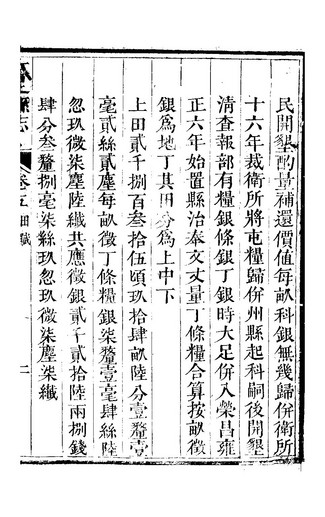 民開墾酌量補還價值每畝科銀無幾歸併衛所
十六年裁衛所將屯糧歸併州縣起科嗣後開墾
清查報部有糧銀條銀丁銀時大足併入榮昌雍
正六年始置縣治奉文丈量丁條糧合算按畝徵
銀為地丁其田分為上中下
上田貳千捌百叁拾伍頃玖拾肆畝陸分壹釐壹
毫貳絲貳塵每畝徵丁條糧銀柒釐壹毫肆絲陸
忽玖微柒塵陸纖共應徵銀貳千貳拾陸兩捌錢
肆分叁釐捌毫柒絲玖忽玖微柒塵柒纖
縣志
卷五
田賦
二